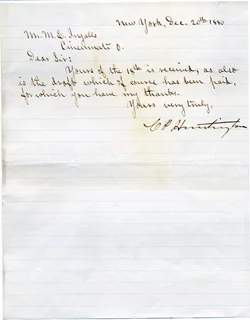 New York, Dec. 20th 1880
Mr. M. E. Ingalls
Cincinnati O.
Dear Sir:
Yours of the 18th is received, as also
is the draft which of course has been paid,
for which you have my thanks.
Yours very truly,
C P Huntington